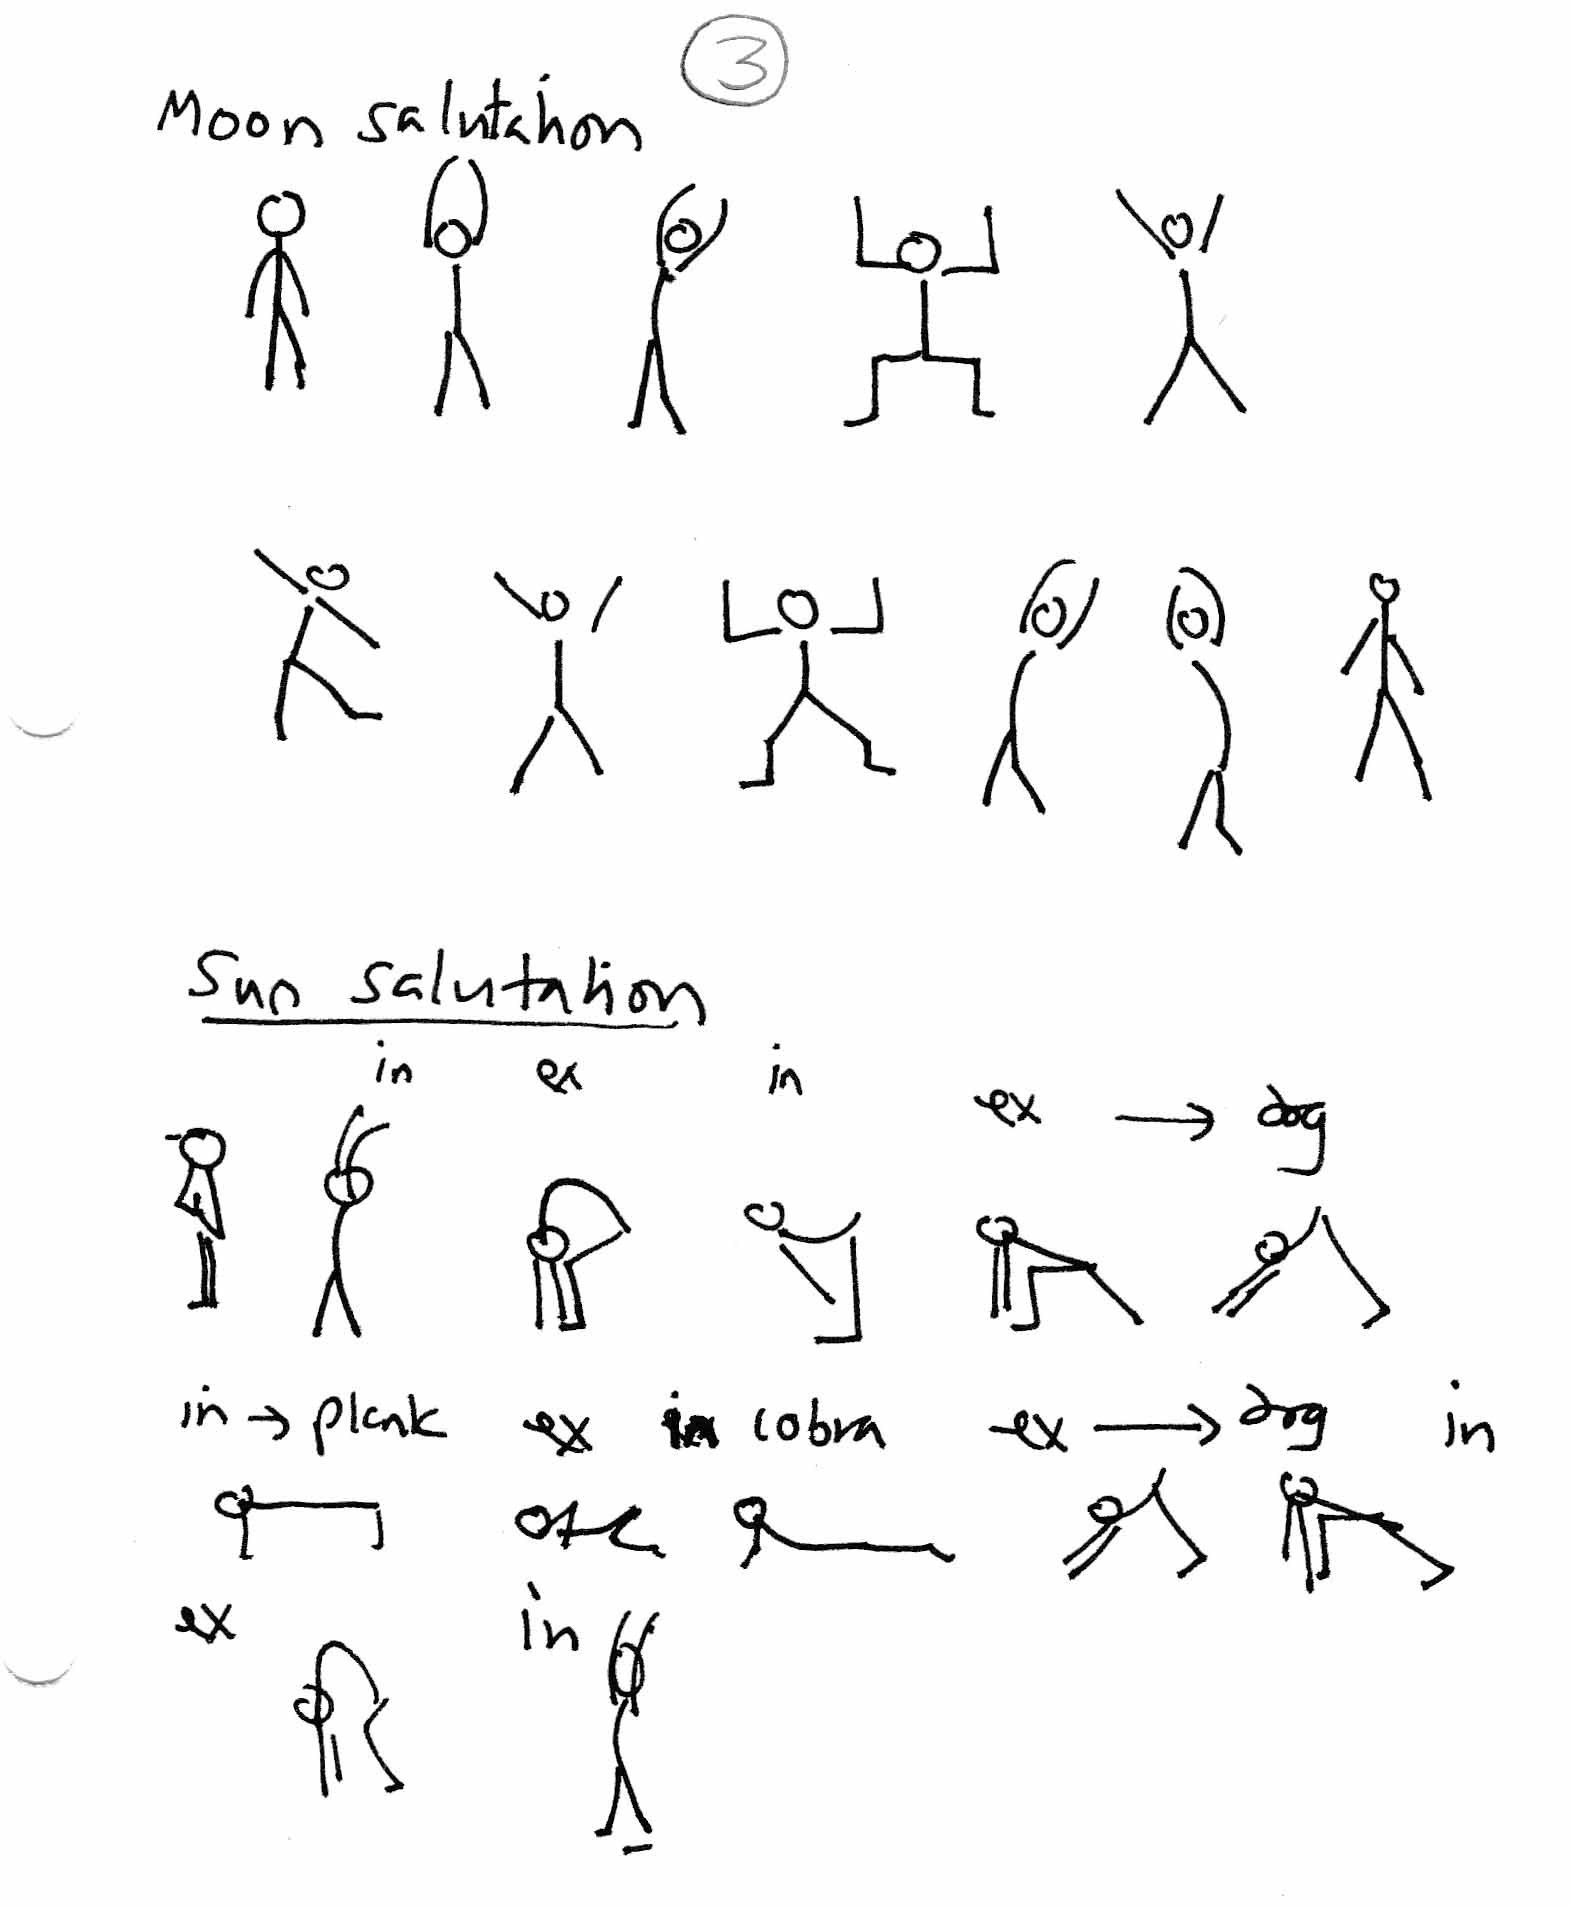 3
Moon salutation
Sun salutation
in ex in
ex → dog
in → plank ex in cobra ex → dog in
ex in